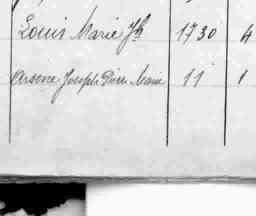 Louis Marie Jh 1730 4
Arsene Joseph Pierre Marie 11 1